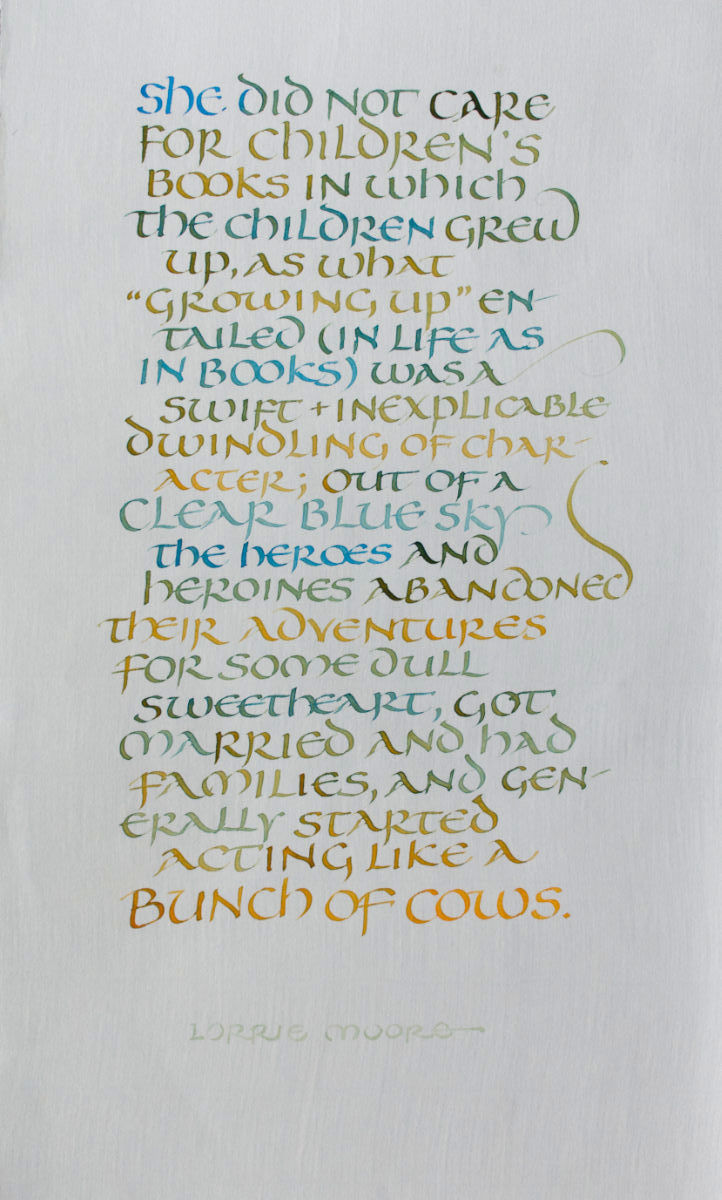 She did not care
for children's
books in which
the children grew
up, as what
“growing up” en-
tailed (in life as
in books) was a
swift + inexplicable
dwindling of char-
acter; out of a
clear blue sky
the heroes and
heroines abandoned
their adventures
for some dull
sweetheart, got
married and had
families, and gen-
erally started
acting like a
bunch of cows.
Lorrie Moore